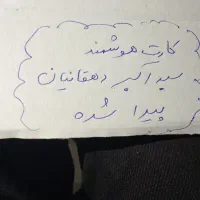 کارت هوشمند
سید اکبر دهقانیان
پیدا شده